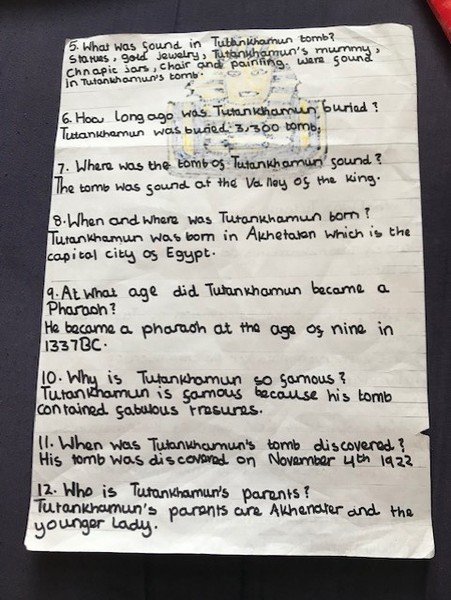 5. What was found in Tutankhamun tomb?
Statues, gold Jewelry, Tutankhamun's mummy,
Chnapic jars, chair and painting. were found
in Tutankhamun's tomb.
6. How long ago was Tutankhamun buried?
Tutankhamun was buried 3,300 tomb.
7. Where was the tomb of Tutankhamun found?
The tomb was found at the Valley of the king.
8. When and where was Tutankhamun born?
Tutankhamun was born in Akhetaten which is the
capital city of Egypt.
9. At what age did Tutankhamun became a
Pharaoh?
He became a pharaoh at the age of nine in
1337BC.
10. Why is Tutankhamun so famous?
Tutankhamun is famous because his tomb
contained fabulous tresures.
11. When was Tutankhamun's tomb discovered?
His tomb was discovered on November 4th 1922
12. Who is Tutankhamun's parents?
Tutankhamun's parents are Akhenater and the
younger lady.